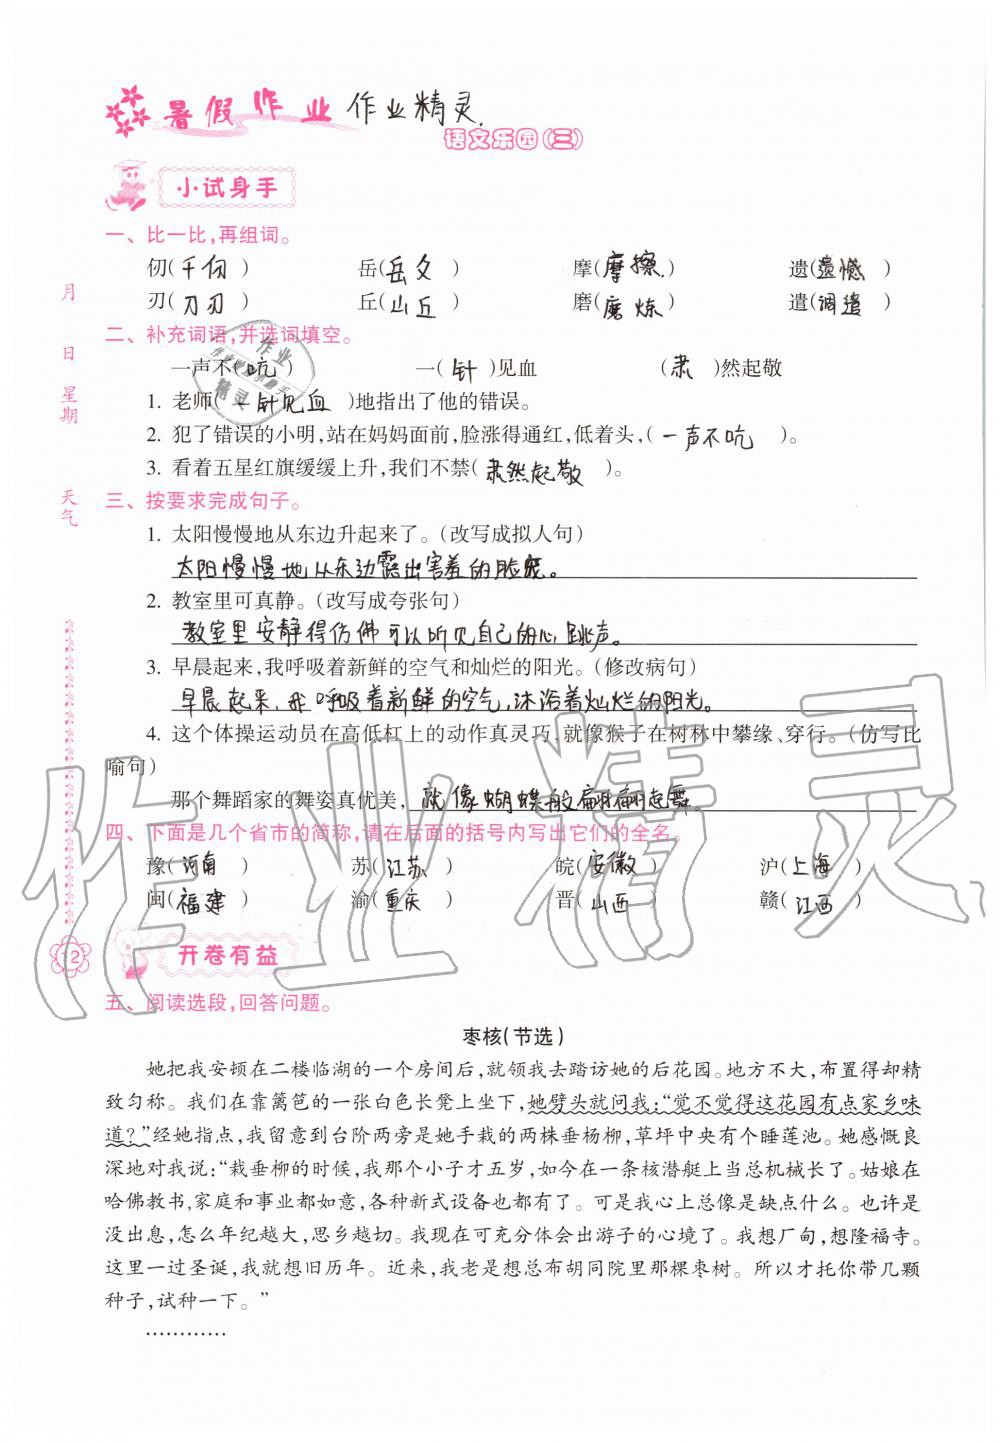 暑假作业 作业精灵.
语文乐园(三)
小试身手
一、比一比,再组词。
仞(千仞) 岳(岳父) 摩(摩擦.) 遗(遗憾)
刃(刀刃) 丘(山丘) 磨(磨炼) 遣(调遣)
二、补充词语,并选词填空。
一声不(吭) 一(针)见血 (肃)然起敬
1. 老师(一针见血)地指出了他的错误。
2. 犯了错误的小明,站在妈妈面前,脸涨得通红,低着头,(一声不吭)。
3. 看着五星红旗缓缓上升,我们不禁(肃然起敬)。
三、按要求完成句子。
1. 太阳慢慢地从东边升起来了。(改写成拟人句)
太阳慢慢地从东边露出害羞的脸庞。
2. 教室里可真静。(改写成夸张句)
教室里安静得仿佛可以听见自己的心跳声。
3. 早晨起来,我呼吸着新鲜的空气和灿烂的阳光。(修改病句)
早晨起来,我呼吸着新鲜的空气,沐浴着灿烂的阳光。
4. 这个体操运动员在高低杠上的动作真灵巧,就像猴子在树林中攀缘、穿行。(仿写比
喻句)
那个舞蹈家的舞姿真优美,就像蝴蝶般翩翩起舞。
四、下面是几个省市的简称,请在后面的括号内写出它们的全名。
豫(河南) 苏(江苏) 皖(安徽) 沪(上海)
闽(福建) 渝(重庆) 晋(山西) 赣(江西)
开卷有益
五、阅读选段,回答问题。
枣核(节选)
她把我安顿在二楼临湖的一个房间后,就领我去踏访她的后花园。地方不大,布置得却精
致匀称。我们在靠篱笆的一张白色长凳上坐下,她劈头就问我:“觉不觉得这花园有点家乡味
道?”经她指点,我留意到台阶两旁是她手栽的两株垂杨柳,草坪中央有个睡莲池。她感慨良
深地对我说:“栽垂柳的时候,我那个小子才五岁,如今在一条核潜艇上当总机械长了。姑娘在
哈佛教书,家庭和事业都如意,各种新式设备也都有了。可是我心上总像是缺点什么。也许是
没出息,怎么年纪越大,思乡越切。我现在可充分体会出游子的心境了。我想厂甸,想隆福寺。
这里一过圣诞,我就想旧历年。近来,我老是想总布胡同院里那棵枣树。所以才托你带几颗
种子,试种一下。”
…………
月
日
星期
天气
2
作业精灵
作业
精灵